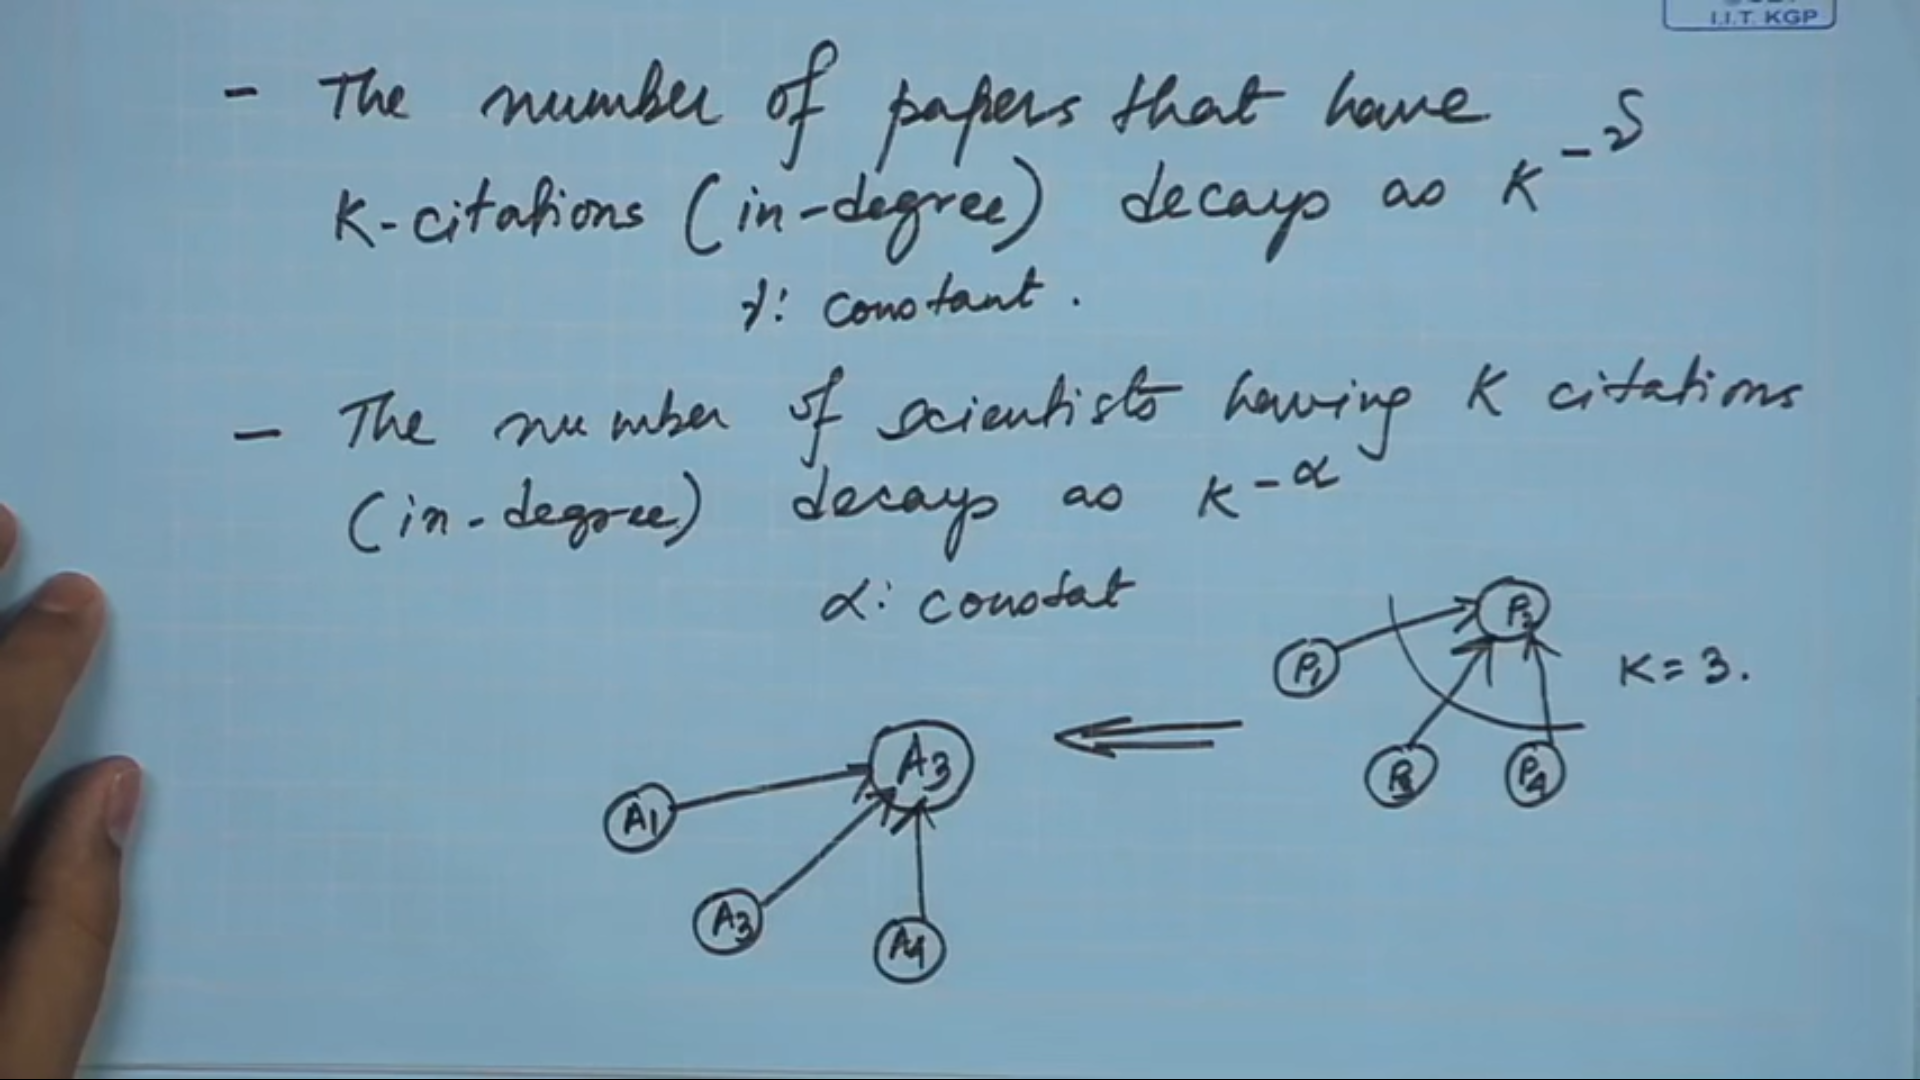 I.I.T. KGP
- The number of papers that have
K-citations (in-degree) decays as K^-γ
γ: constant.
- The number of scientists having K citations
(in-degree) decays as K^-α
α: constat
P1 K = 3.
P4
A1 A3
A3 A4